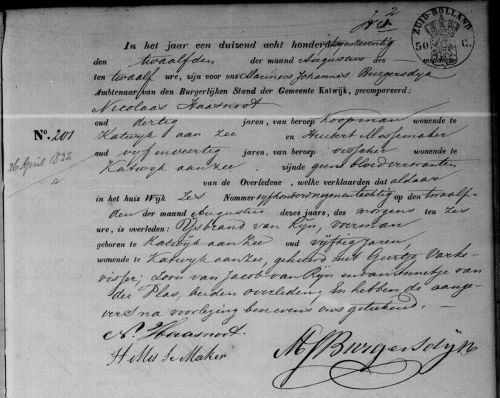 2
ZUID-HOLLAND
50 C.
In het jaar een duizend acht honderd tweeenzeventig
den twaalfden der maand Augustus des middags
ten twaalf ure, zijn voor ons Marinus Johannes Burgersdijk
Ambtenaar van den Burgerlijken Stand der Gemeente Katwijk, gecompareerd:
Nicolaas Haasnoot
oud dertig jaren, van beroep koopman wonende te
No. 201
Katwijk aan Zee en Huibert Messemaker
26 April 1822
oud vijfenveertig jaren, van beroep visscher wonende te
Katwijk aan Zee. zijnde geene bloedverwanten
van de Overledene, welke verklaarden dat aldaar
in het huis Wijk Zes Nommer vijfhonderdnegenentachtig op den twaalf-
den der maand Augustus dezes jaars, des morgens ten zes
ure, is overleden: Pijsbrand van Rijn, voerman
geboren te Katwijk aan Zee oud vijftig jaren,
wonende te Katwijk aan Zee, gehuwd met Geertje Varke-
visser; Zoon van Jacob van Rijn en van Annetje van
der Plas, beiden overleden; En hebben de aange-
vers na voorlezing benevens ons geteekend.
N. Haasnoot
H Messe Maker
MJBurgersdijk